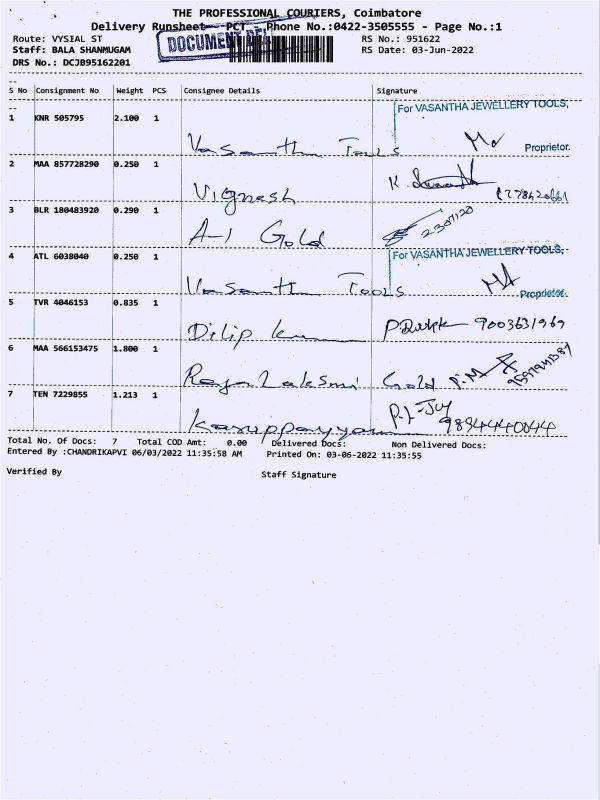 THE PROFESSIONAL COURIERS, Coimbatore
Delivery Runsheet--PCT - Phone No.:0422-3505555 - Page No.:1
Route: VYSIAL ST RS No.: 951622
Staff: BALA SHANMUGAM RS Date: 03-Jun-2022
DRS No.: DCJB95162201
DOCUMENT
S No Consignment No Weight PCS Consignee Details Signature
For VASANTHA JEWELLERY TOOLS,
1 KNR 505795 2.100 1
Vasanth Tools Proprietor.
2 MAA 857728290 0.250 1
Vignesh K.
3 BLR 180483920 0.290 1
A-1 Gold 2307120
4 ATL 6038040 0.250 1 For VASANTHA JEWELLERY TOOLS,
Vasanth Tools Proprietor.
5 TVR 4046153 0.835 1
Dilip 9003631969
6 MAA 566153475 1.800 1
Raja Laksmi Gold
7 TEN 7229855 1.213 1
Karuppayya 9894440044
Total No. Of Docs: 7 Total COD Amt: 0.00 Delivered Docs: Non Delivered Docs:
Entered By :CHANDRIKAPVI 06/03/2022 11:35:58 AM Printed On: 03-06-2022 11:35:55
Verified By Staff Signature